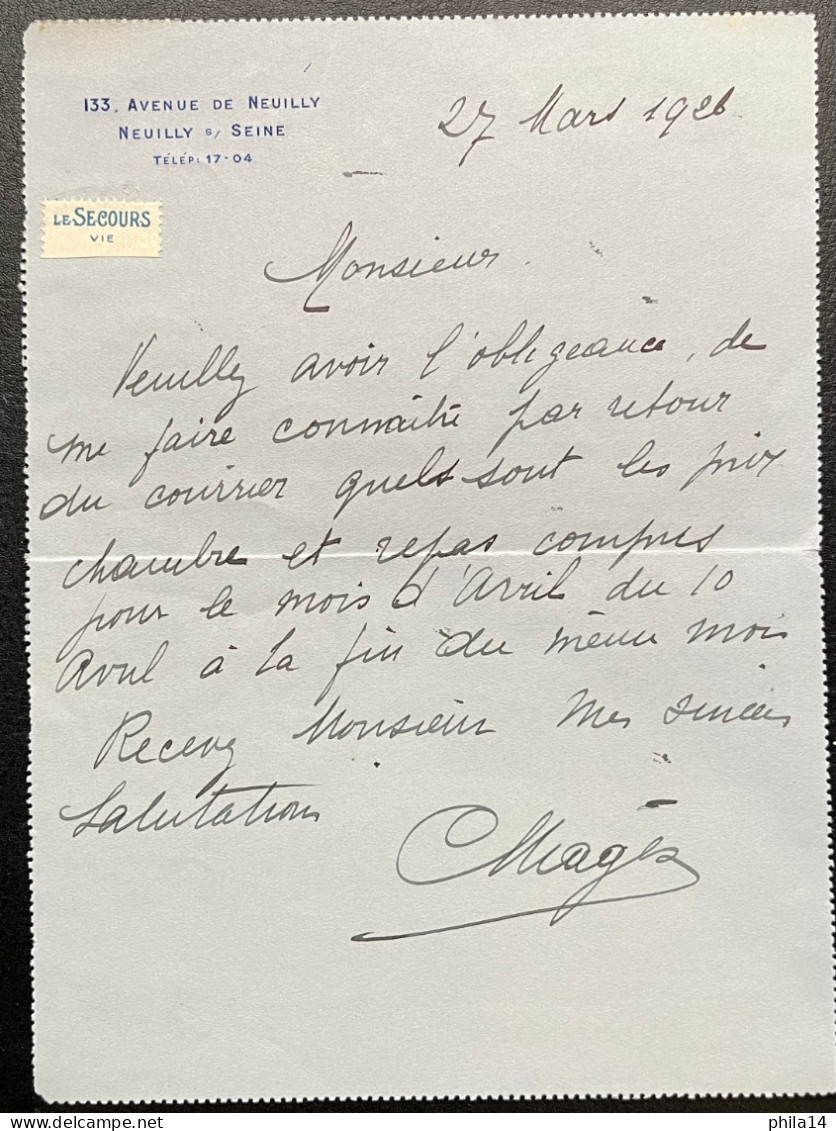 133, AVENUE DE NEUILLY
NEUILLY S/ SEINE
TÉLÉP: 17-04
27 Mars 1926
LE SECOURS
VIE
Monsieur
Veuillez avoir l'obligeance, de
me faire connaître par retour
du courrier quels sont les prix
chambre et repas compris
pour le mois d'Avril du 10
Avril à la fin du même mois
Recevez Monsieur mes sincères
Salutations
phila14